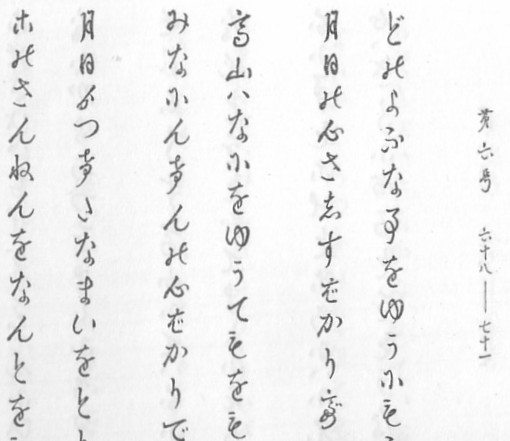 第六号 六十八――七十一
どのよふな事をゆうにも
月日の心さしすばかりで
高山ハなにをゆうてもをも
みなにんけんの心ばかりで
月日よりつけたなまいをと
このさんねんをなんとを